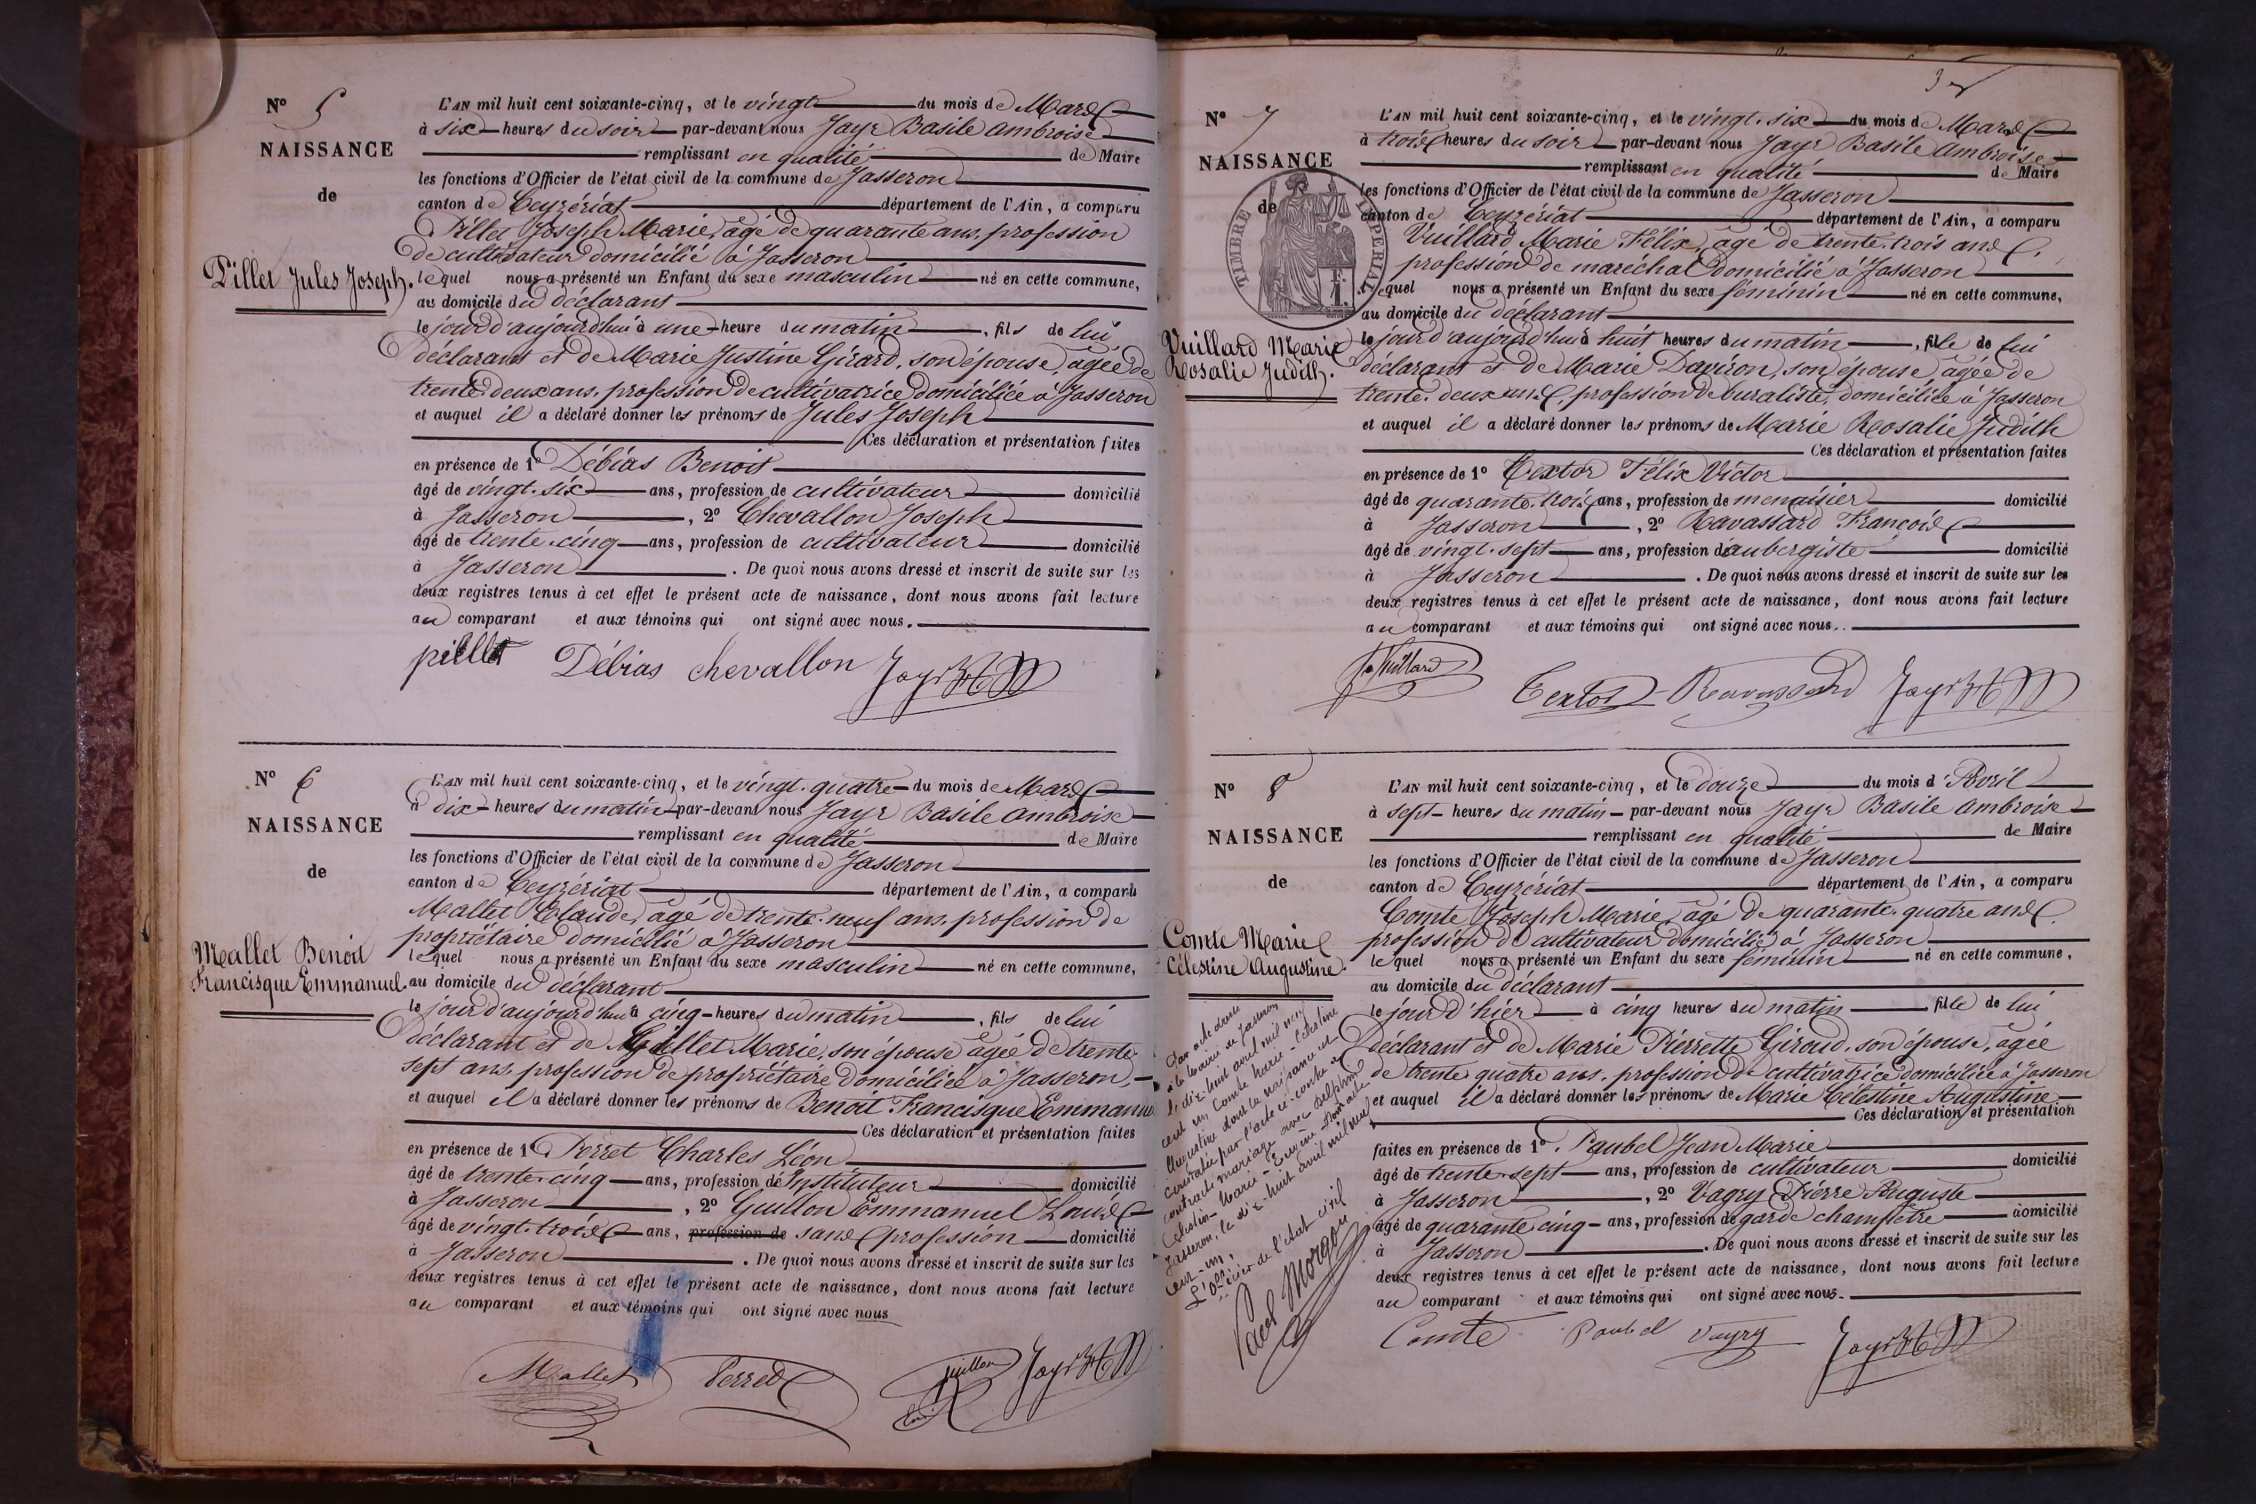 Nº 5
NAISSANCE
de
Pillet Jules Joseph.
L'AN mil huit cent soixante-cinq, et le vingt du mois de Mars
à six heures du soir par-devant nous Jayr Basile Ambroise
remplissant en qualité de Maire
les fonctions d'Officier de l'état civil de la commune de Jasseron
canton de Ceyzériat département de l'Ain, a comparu
Pillet Joseph Marie, âgé de quarante ans, profession
de cultivateur domicilié à Jasseron
lequel nous a présenté un Enfant du sexe masculin né en cette commune,
au domicile du déclarant
le jour d'aujourd'hui à une heure du matin, fils de lui
déclarant et de Marie Justine Girard, son épouse, âgée de
trente deux ans, profession de cultivatrice domiciliée à Jasseron
et auquel il a déclaré donner les prénoms de Jules Joseph
Ces déclaration et présentation faites
en présence de 1º Débias Benoit
âgé de vingt-six ans, profession de cultivateur domicilié
à Jasseron, 2º Chevallon Joseph
âgé de trente-cinq ans, profession de cultivateur domicilié
à Jasseron. De quoi nous avons dressé et inscrit de suite sur les
deux registres tenus à cet effet le présent acte de naissance, dont nous avons fait lecture
au comparant et aux témoins qui ont signé avec nous.
pillet Débias chevallon Jayr
Nº 6
NAISSANCE
de
Mallet Benoit
Francisque Emmanuel.
L'AN mil huit cent soixante-cinq, et le vingt-quatre du mois de Mars
à dix heures du matin par-devant nous Jayr Basile Ambroise
remplissant en qualité de Maire
les fonctions d'Officier de l'état civil de la commune de Jasseron
canton de Ceyzériat département de l'Ain, a comparu
Mallet Claude, âgé de trente-neuf ans, profession de
propriétaire domicilié à Jasseron
lequel nous a présenté un Enfant du sexe masculin né en cette commune,
au domicile du déclarant
le jour d'aujourd'hui à cinq heures du matin, fils de lui
déclarant et de Mallet Marie, son épouse âgée de trente
sept ans, profession de propriétaire domiciliée à Jasseron,
et auquel il a déclaré donner les prénoms de Benoit Francisque Emmanuel
Ces déclaration et présentation faites
en présence de 1º Perret Charles Léon
âgé de trente-cinq ans, profession d'Instituteur domicilié
à Jasseron, 2º Guillon Emmanuel Louis
âgé de vingt-trois ans, profession de sans profession domicilié
à Jasseron. De quoi nous avons dressé et inscrit de suite sur les
deux registres tenus à cet effet le présent acte de naissance, dont nous avons fait lecture
au comparant et aux témoins qui ont signé avec nous
Mallet Perret guillon Jayr
3
Nº 7
NAISSANCE
de
TIMBRE IMPERIAL
Vuillard Marie
Rosalie Judith.
L'AN mil huit cent soixante-cinq, et le vingt-six du mois de Mars
à trois heures du soir par-devant nous Jayr Basile Ambroise
remplissant en qualité de Maire
les fonctions d'Officier de l'état civil de la commune de Jasseron
canton de Ceyzériat département de l'Ain, a comparu
Vuillard Marie Félix, âgé de trente-trois ans,
profession de maréchal domicilié à Jasseron
lequel nous a présenté un Enfant du sexe féminin né en cette commune,
au domicile du déclarant
le jour d'aujourd'hui à huit heures du matin, fille de lui
déclarant et de Marie Daviron, son épouse âgée de
trente-deux ans, profession de buraliste, domiciliée à Jasseron
et auquel il a déclaré donner les prénoms de Marie Rosalie Judith
Ces déclaration et présentation faites
en présence de 1º Textor Félix Victor
âgé de quarante-trois ans, profession de menuisier domicilié
à Jasseron, 2º Ravassard François
âgé de vingt-sept ans, profession d'aubergiste domicilié
à Jasseron. De quoi nous avons dressé et inscrit de suite sur les
deux registres tenus à cet effet le présent acte de naissance, dont nous avons fait lecture
au comparant et aux témoins qui ont signé avec nous.
Vuillard Textor Ravassard Jayr
Nº 8
NAISSANCE
de
Comte Marie
Célestine Augustine.
Par acte dressé
à la mairie de Jasseron
le dix-huit avril mil neuf
cent un Comte Marie-Célestine
Augustine dont la naissance est
constatée par l'acte ci-contre a
contracté mariage avec Delphin
Célestin-Marie-Eugène
Jasseron, le dix-huit avril mil neuf
cent-un.
L'Officier de l'état civil
Paul Morgon
L'AN mil huit cent soixante-cinq, et le douze du mois d'Avril
à sept heures du matin par-devant nous Jayr Basile Ambroise
remplissant en qualité de Maire
les fonctions d'Officier de l'état civil de la commune de Jasseron
canton de Ceyzériat département de l'Ain, a comparu
Comte Joseph Marie, âgé de quarante-quatre ans,
profession de cultivateur domicilié à Jasseron
lequel nous a présenté un Enfant du sexe féminin né en cette commune,
au domicile du déclarant
le jour d'hier à cinq heures du matin, fille de lui
déclarant et de Marie Pierrette Giroud, son épouse, âgée
de trente-quatre ans, profession de cultivatrice domiciliée à Jasseron
et auquel il a déclaré donner les prénoms de Marie Célestine Augustine
Ces déclaration et présentation
faites en présence de 1º. Paubel Jean Marie
âgé de trente-sept ans, profession de cultivateur domicilié
à Jasseron, 2º Vagry Pierre Auguste
âgé de quarante cinq ans, profession de garde champêtre domicilié
à Jasseron. De quoi nous avons dressé et inscrit de suite sur les
deux registres tenus à cet effet le présent acte de naissance, dont nous avons fait lecture
au comparant et aux témoins qui ont signé avec nous.
Comte Paubel Vagry Jayr